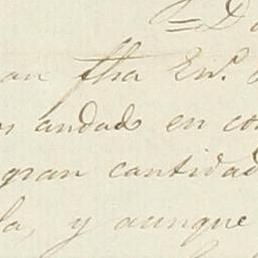 = D
an fha En.º
os andado en co
gran cantidad
la, y aunque